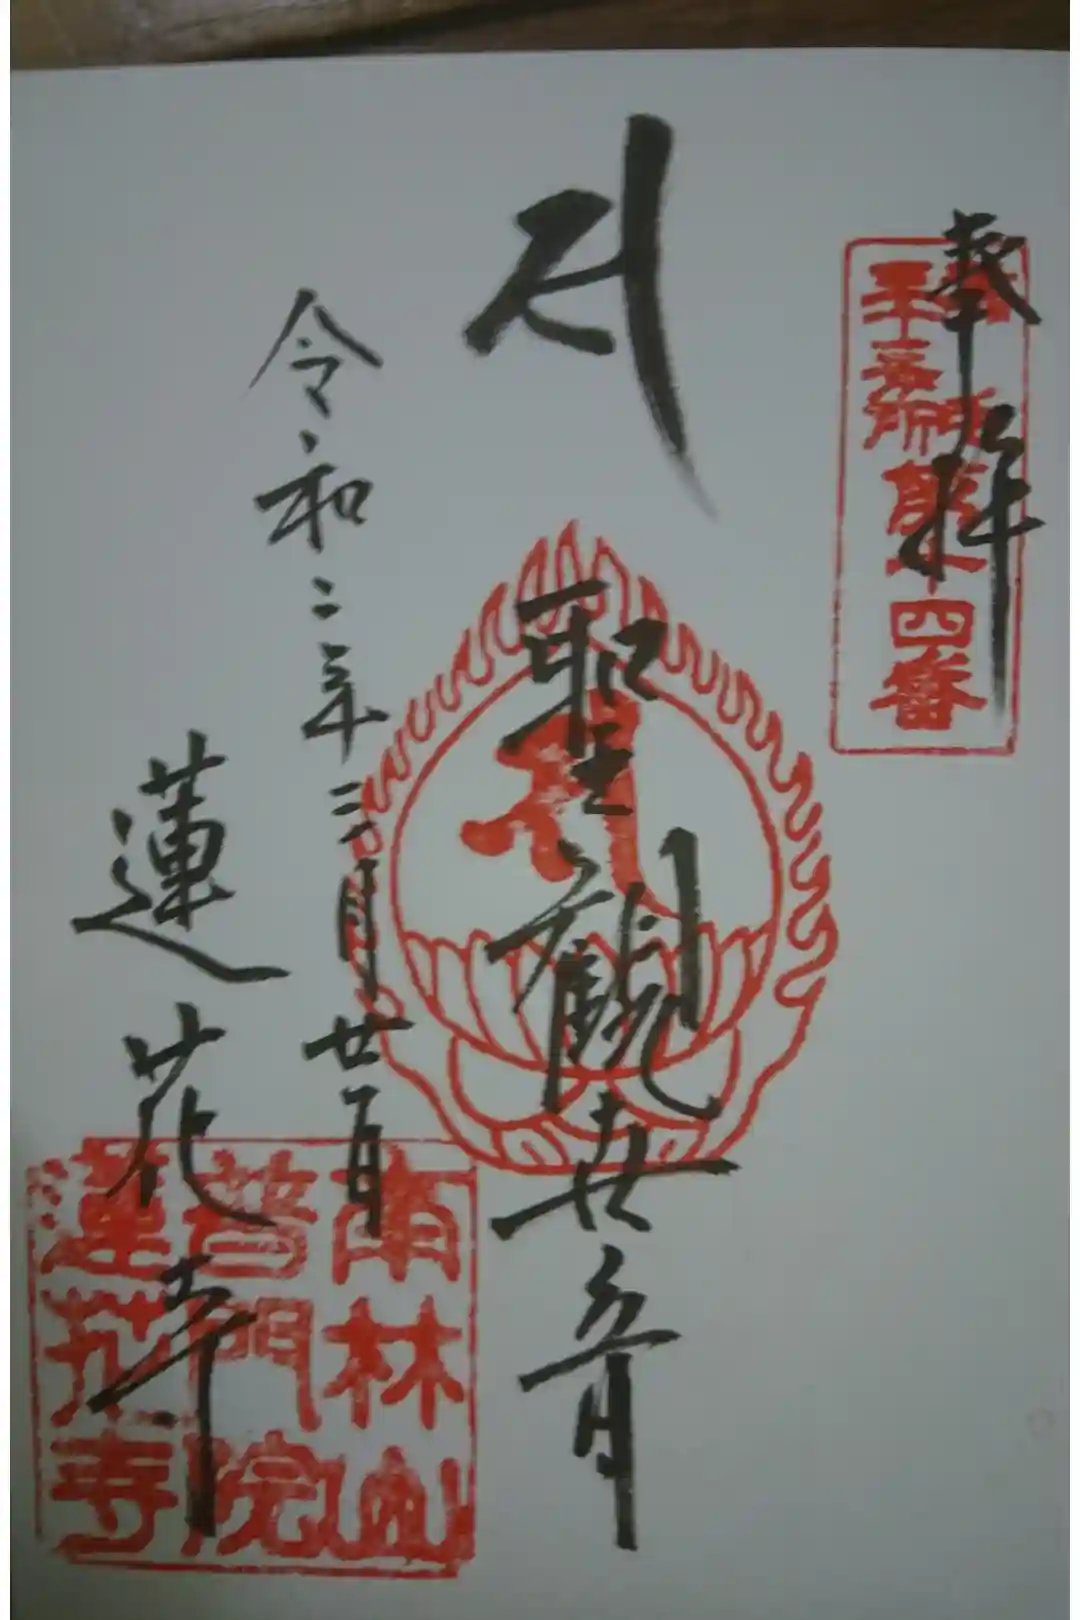 奉拝
第十四番
聖観世音
令和二年三月廿一日
蓮花寺
南林山
普門院
蓮花寺